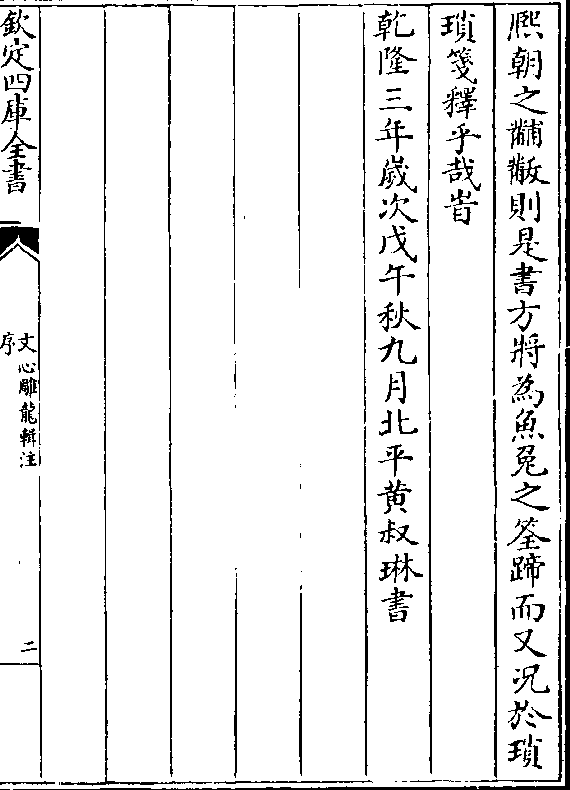 熈朝之黼黻則是書方將為魚兔之筌蹄而又況於瑣
瑣箋釋乎哉旹
乾隆三年歲次戊午秋九月北平黄叔琳書
欽定四庫全書
文心雕龍輯注
序
二